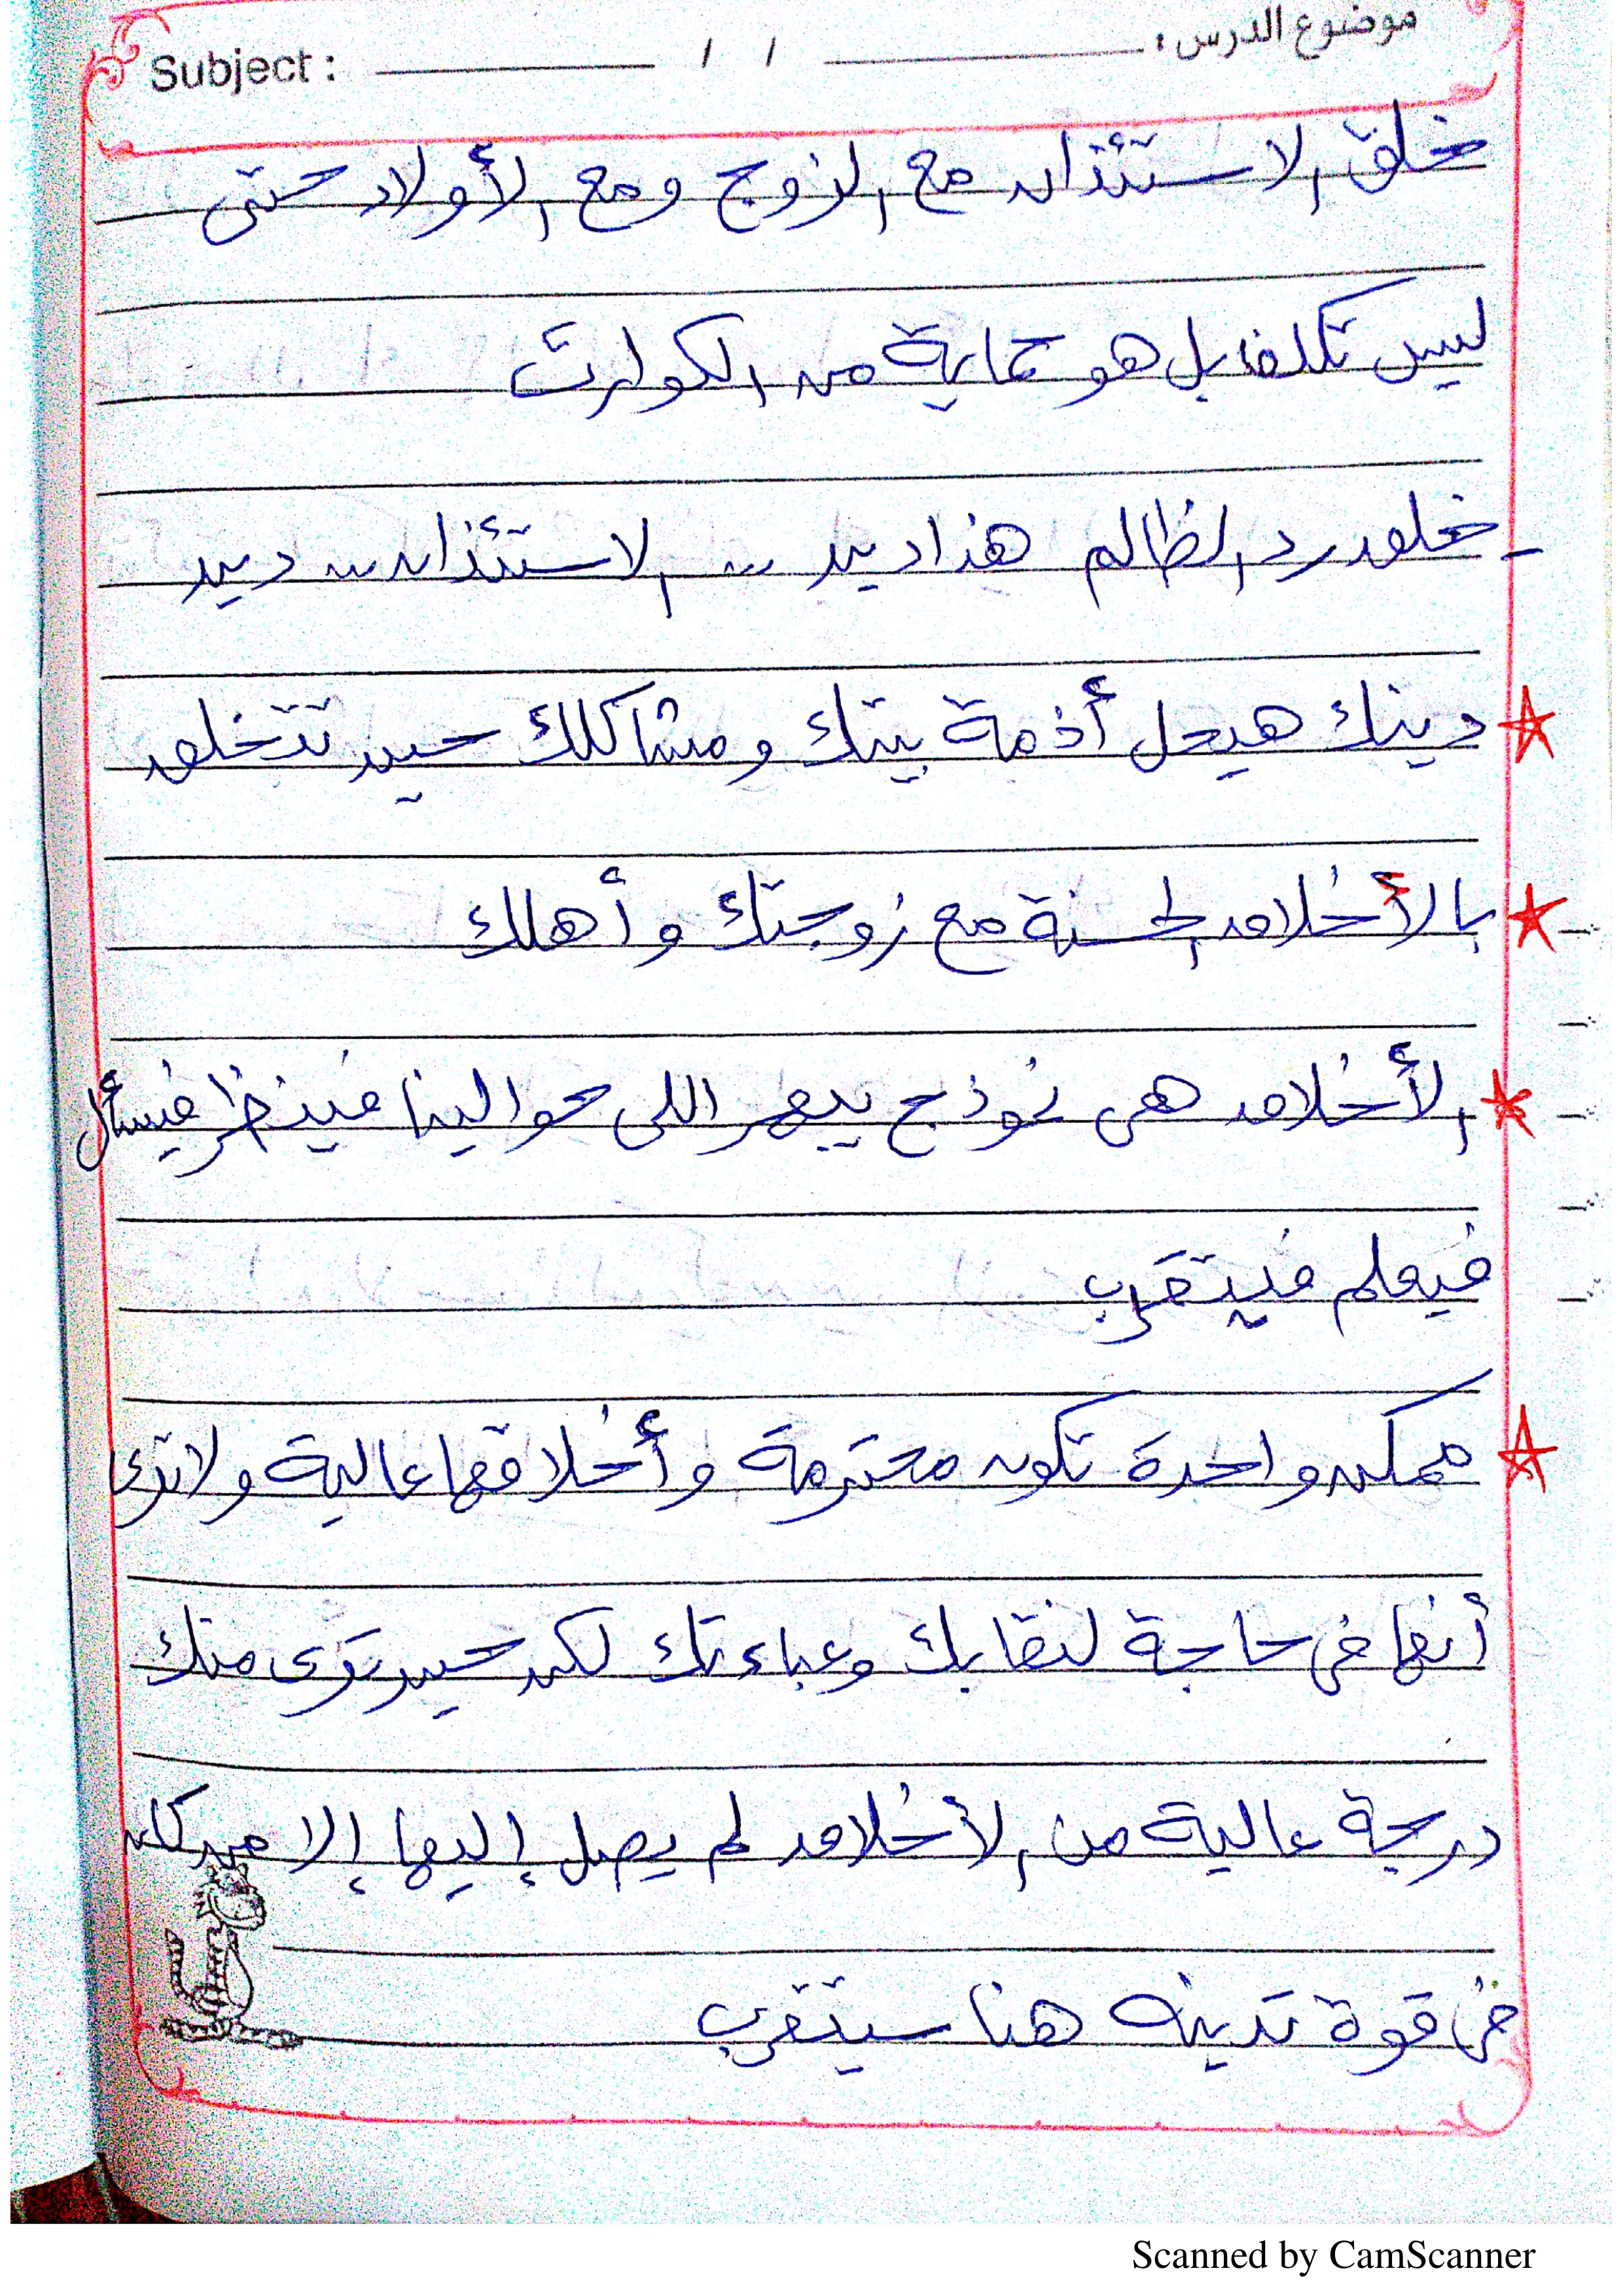 موضوع الدرس : / / Subject :
خلق الاستئذان مع الزوج ومع الأولاد حتى
ليس تكلفا بل هو حماية من الكوارث
- خلق رد الظالم هذا دين ،،، الاستئذان ،،، دين
☆ دينك هيحل أذمة بيتك ومشاكلك حين تتخلق
☆ بالأخلاق الحسنة مع زوجتك وأهلك
☆ الأخلاق هى نموذج يبهر اللى حوالينا فينظر فيسأل
فيعلم فيتقرب
☆ ممكن واحدة تكون محترمة وأخلاقها عالية ولا ترى
أنها فى حاجة لنقابك وعباءتك لكن حين ترى منك
درجة عالية من الأخلاق لم يصل إليها إلا من كان
فى قوة تدينه هنا سيتقرب
Scanned by CamScanner